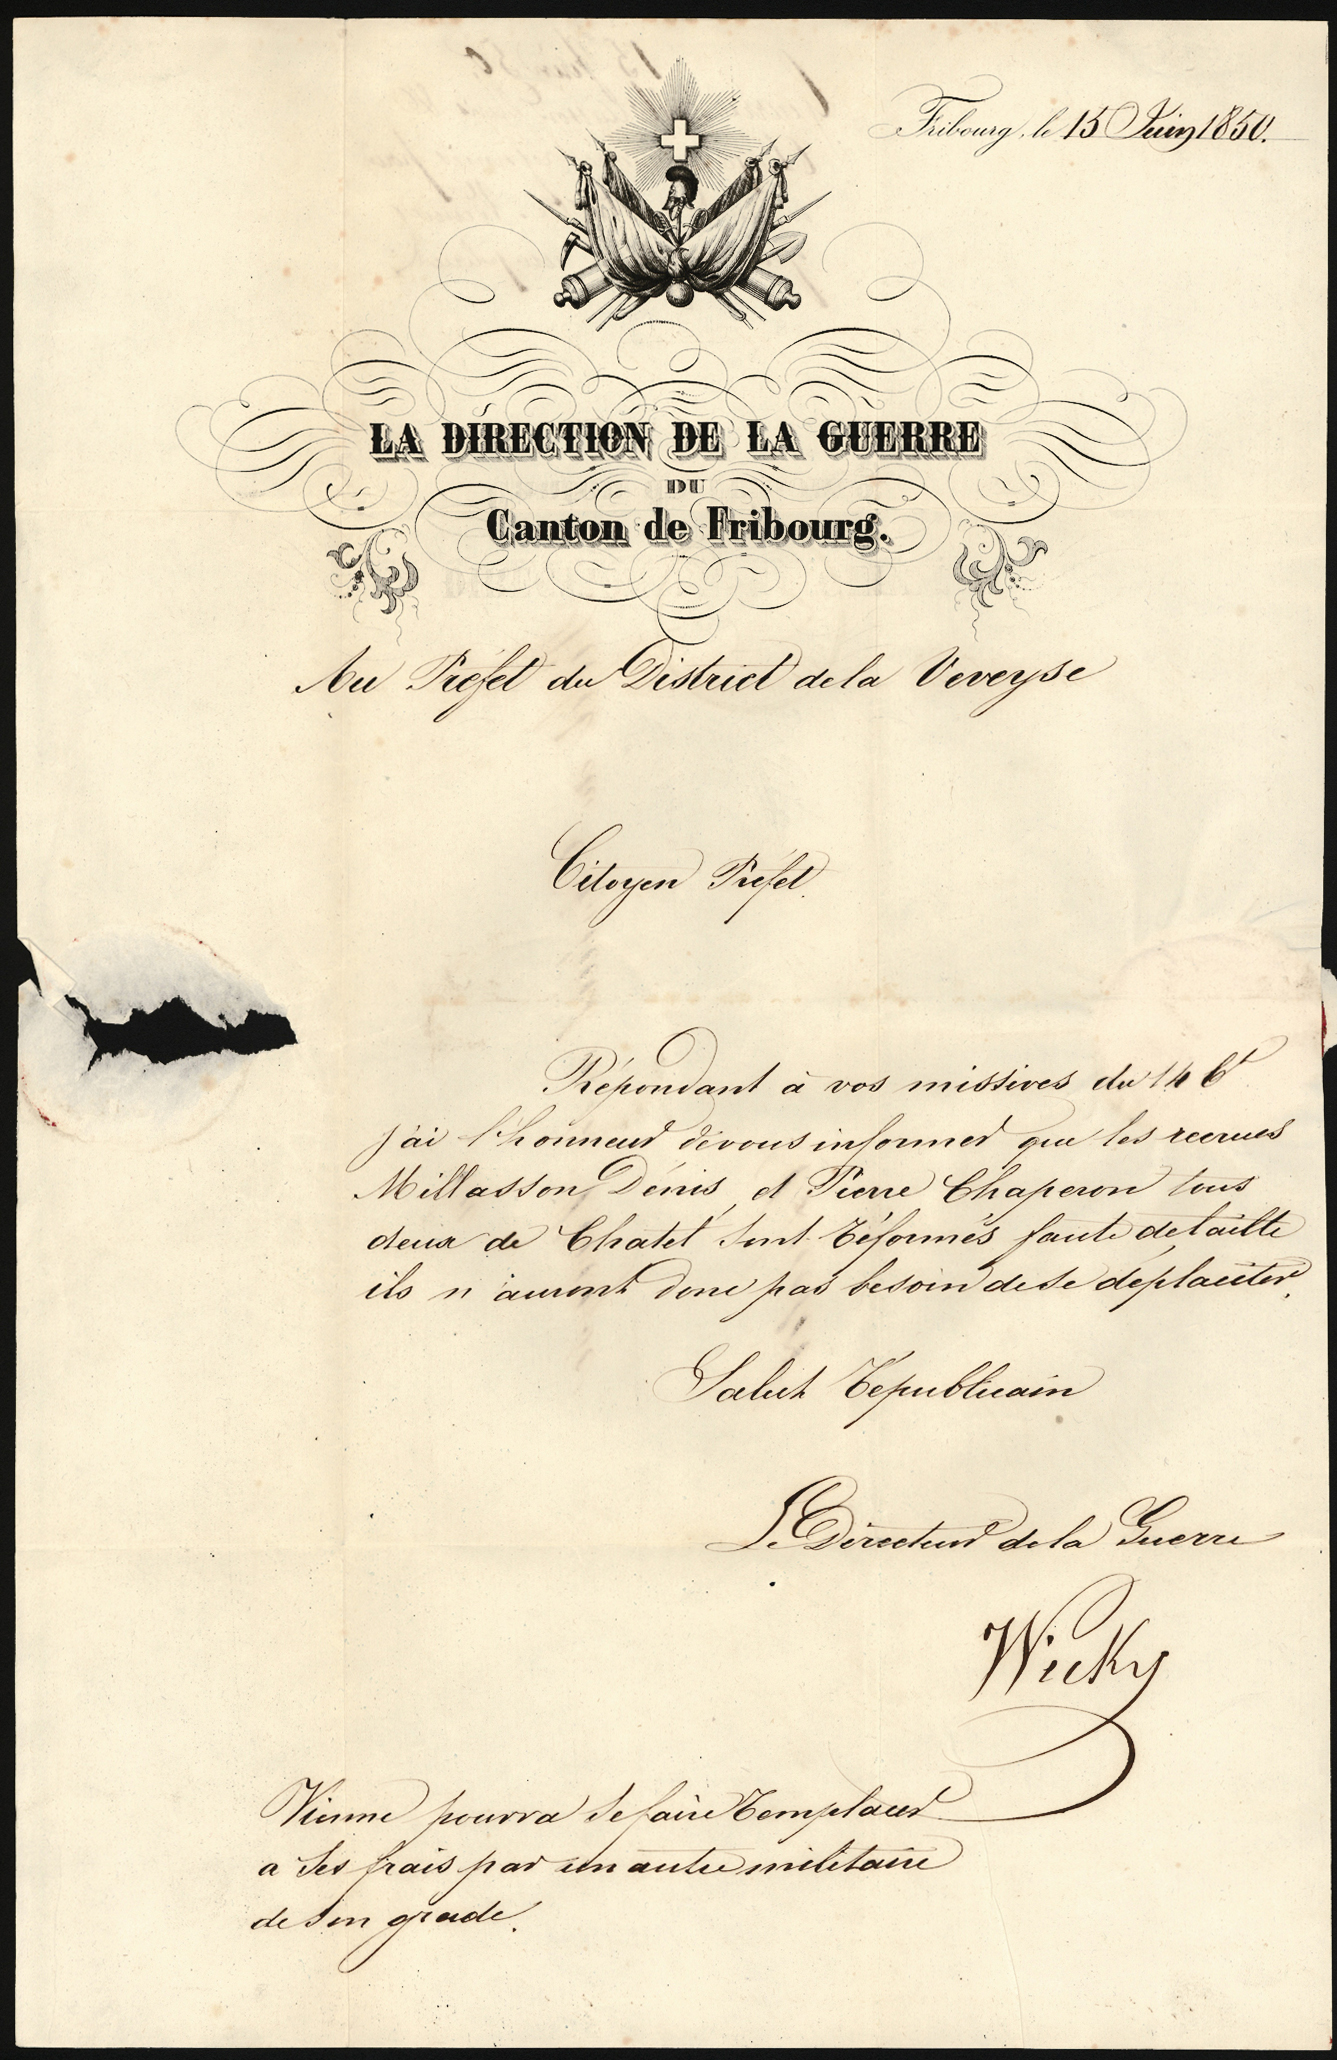 Fribourg, le 15 Juin 1850.
LA DIRECTION DE LA GUERRE
DU
Canton de Fribourg.
Au Préfet du District de la Veveyse
Citoyen Préfet.
Répondant à vos missives du 14 Ct
j'ai l'honneur de vous informer que les recrues
Millasson Dénis, et Pierre Chaperon tous
deux de Chatel sont réformés faute de taille
ils n'auront donc pas besoin de se déplacer.
Salut républicain
Le Directeur de la Guerre
Wicky
Vienne pourra se faire remplacer
a ses frais par un autre militaire
de son grade.